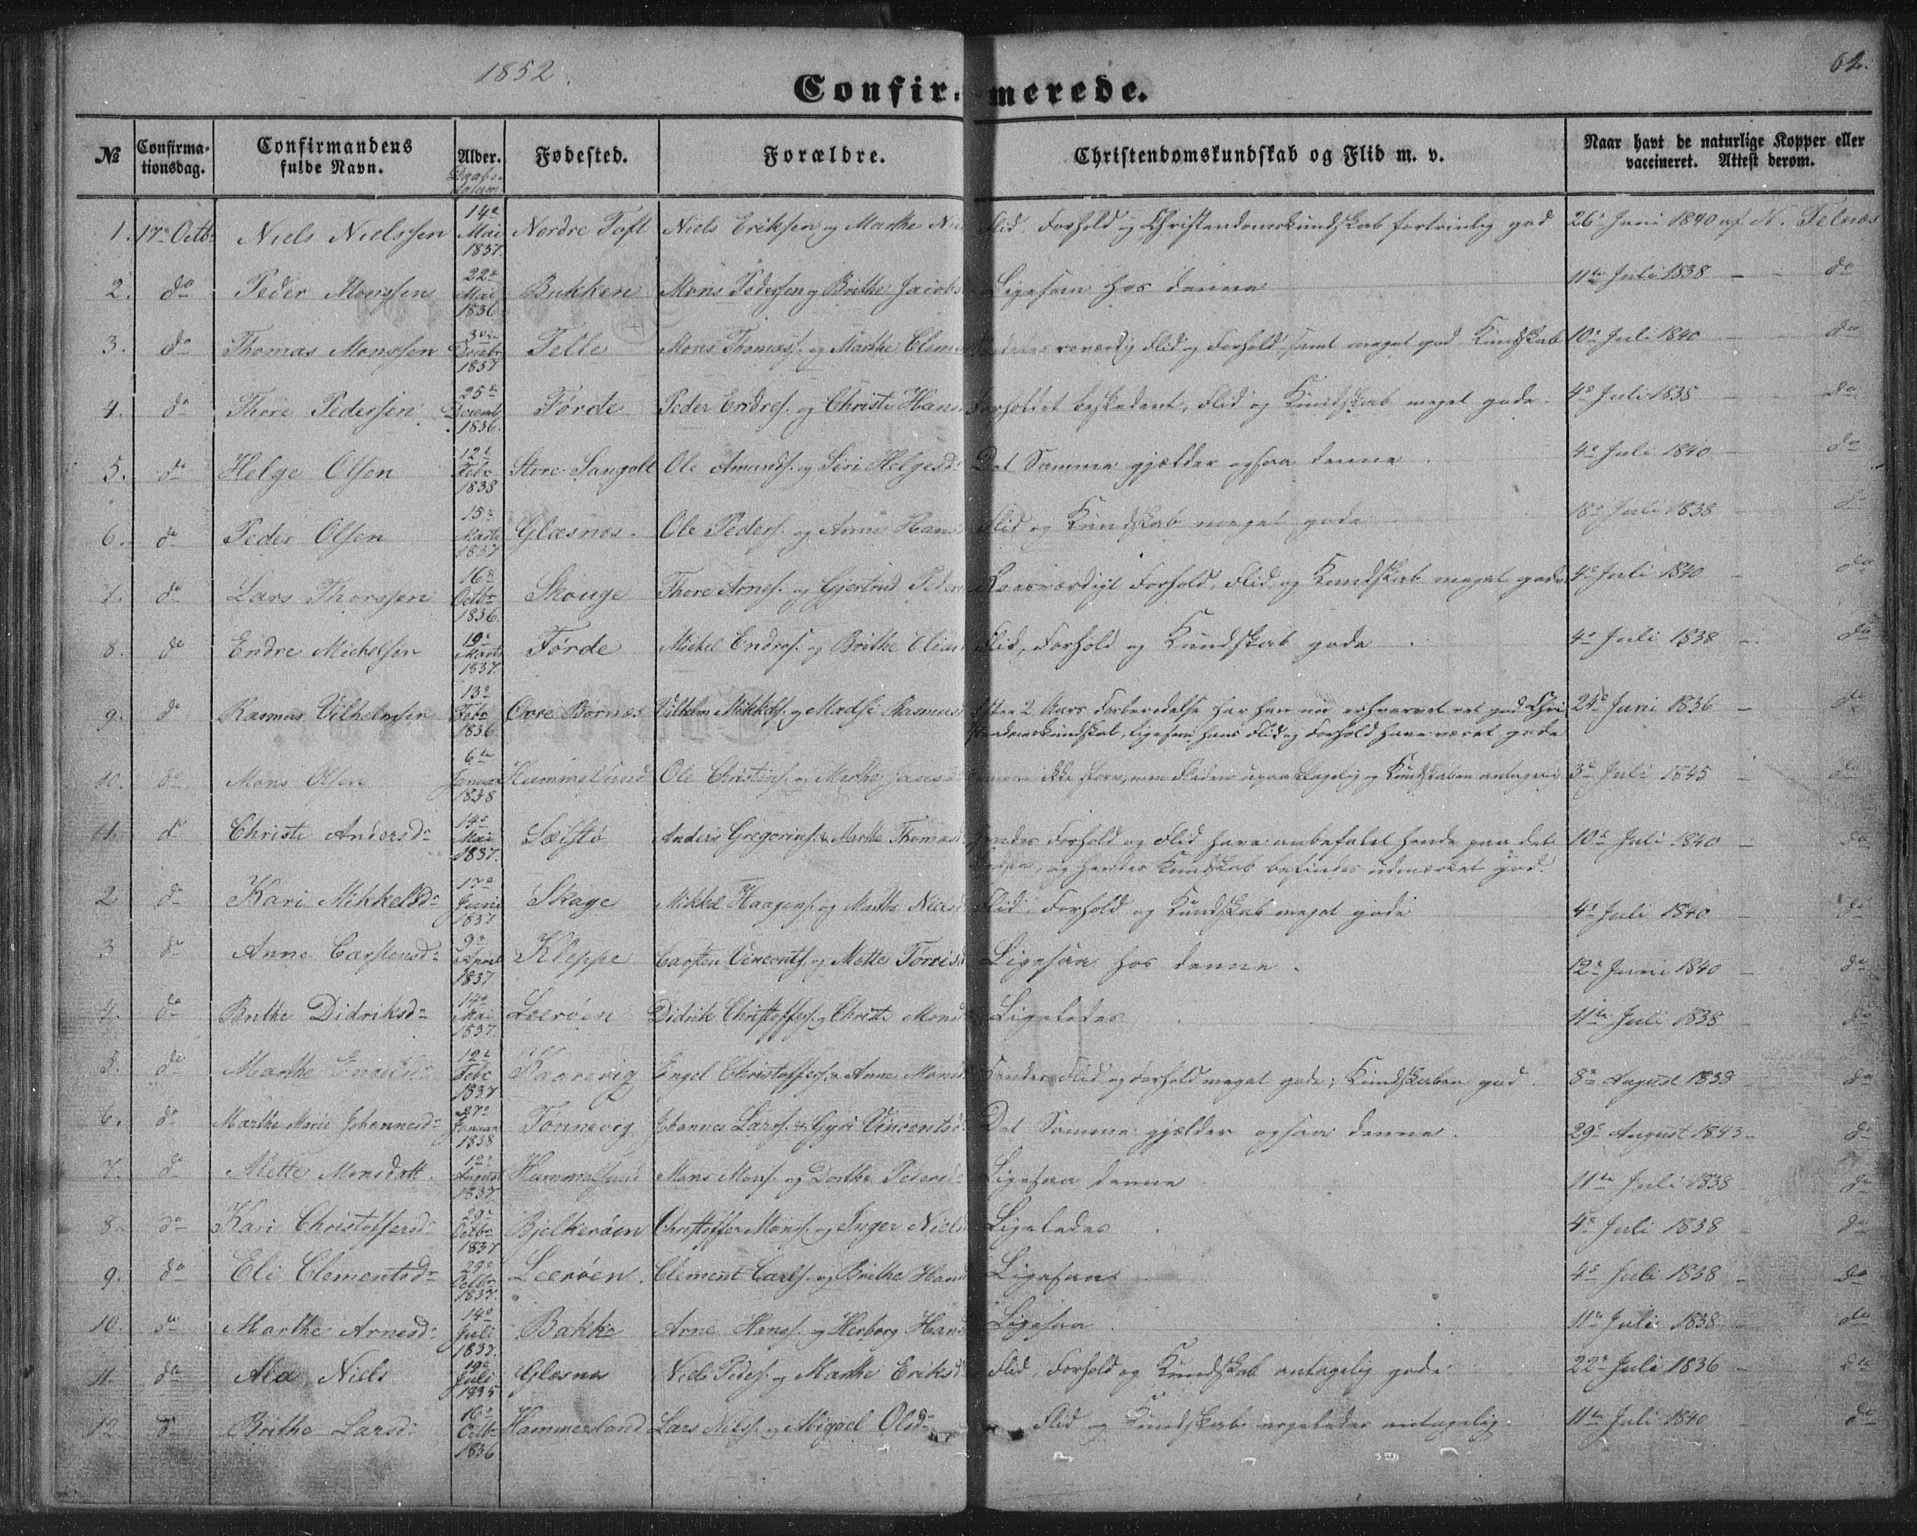 1852.
62.
Confirmerede.
№ | Confirmationsdag. | Confirmandens fulde Navn. | Alder. | Fødested. | Forældre. | Christendomskundskab og Flid m. v. | Naar havt de naturlige Kopper eller vaccineret. Attest derom.
1. | 17e Octb. | Niels Nielssen | 14e Mai 1837. | Nordre Toft | Niels Eriksen og Marthe | Flid, Forhold og Christendomskundskab fortrinlig god | 26e Juni 1840 af N.
2. | do | Peder Monssen | 22e Mai 1836 | Bukken | Mons Pedersen og Brithe Jacobs | Ligesaa hos denne | 11te Juli 1838 - - do
3. | do | Thomas Monssen | 1837 | Telle | Mons Thomass. og Marthe Clem | Flid og Forhold, samt meget god Kundskab | 10e Juli 1840 - do
4. | do | Thore Pedersen | 25e Decemb 1836. | Førde | Peder Endres. og Christi Hans | Forholdet beskedent, Flid og Kundskab meget gode. | 4e Juli 1838 - do
5. | do | Helge Olsen | 12e Febr 1838 | Store Sangolt | Ole Amunds. og Siri Helgesd. | Det Samme gjælder ogsaa denne | 4e Juli 1840 - do
6. | do | Peder Olsen | 15e Marts 1837 | Glæsnes. | Ole Peders. og Anne Hans | Flid og Kundskab meget gode | 18e Juli 1838 - do
7. | do | Lars Thorssen | 16e Octbr 1836. | Skouge | Thore Arnes. og Gjertrud Peders | Forhold, Flid og Kundskab meget gode | 4e Juli 1840 - do
8. | do | Endre Michelsen | 19e Marts 1837. | Førde | Mickel Endres. og Brithe Elias | Flid, Forhold og Kundskab gode | 4e Juli 1838 - do
9. | do | Rasmus Vilhelmsen | 13e Febr 1836 | Øvre Bornæs | Vilhelm Mikkels. og Madsi Rasmus | Efter 2 Aars Forberedelse har han nu erhvervet ret god Christendomskundskab, ligesom hans Flid og Forhold have været gode | 24e Juni 1836 - do
10. | do | Mons Olsen | 6te Januar 1838 | Hummelsund | Ole Christens. og Marthe Jansd | ikke store, men Fliden og Kundskaben antagelig | 3e Juli 1845 - do
11. | do | Christi Andersd. | 14e Mai 1837. | Sælstø | Anders Gregorius. & Marthe Thomas | Hendes Forhold og Flid have anbefalet hende paa det Bedste, og hendes Kundskab befindes udmærket god. | 10e Juli 1840 - do
2 | do | Kari Mikkelsd. | 17e Juni 1837 | Skage | Mikkel Haagens. og Marthe Nielsd | Flid, Forhold og Kundskab meget gode | 4e Juli 1840 - do
3 | do | Anne Carstensd. | 9e April 1837. | Kleppe | Carsten Vincents. og Mette | Ligesaa hos denne. | 12e Juni 1840 - do
4. | do | Brithe Didriksd. | 14e Mai 1837. | Leerøen | Didrik Christoffers. og Christi Monsd | Ligeledes | 11te Juli 1838 - do
5. | do | Marthe Engelsd. | 12e Febr 1837 | Kaarevig | Engel Christoffers. & Anne Monsd | Hendes Flid og Forhold meget gode; Kundskaben god. | 8e August 1838 - do
6. | do | Marthe Marie Johannesd. | 27e Januar 1838 | Tønnevig | Johannes Larss. & Gyri Vincentsd. | Det Samme gjælder ogsaa denne. | 29e August 1843 - do
7. | do | Mette Monsdatt. | 12e August 1837. | Hummelsund | Mons Mons. og Dorthe Pedersd. | Ligesaa denne | 11te Juli 1838 - do
8. | do | Kari Christoffersd. | 29e Octbr 1837 | Bjelkerøen | Christoffer Mons. og Inger Niels | Ligeledes | 4e Juli 1838 - do
9. | do | Eli Clementsd. | 29e Octbr 1837. | Leerøen. | Clement Carls. og Brithe Hansd | Ligesaa | 4e Juli 1838 - do
10. | do | Marthe Arnesd. | 14e Juli 1837. | Bakke | Arne Hans. og Herborg Hansd | Ligesaa | 11te Juli 1838 - do
11. | do | Ale Niels | 19e Juli 1835 | Glæsnes | Niels Peders. og Marthe Eriksd | Flid, Forhold og Kundskab antagelig gode | 22e Juli 1836 - do
12 | do | Brithe Larsd. | 16e Octbr 1836 | Hammersland | Lars Niels. og Abigael Olsd. | Flid og Kundskab nogenledes antagelig. | 11te Juli 1840 - do